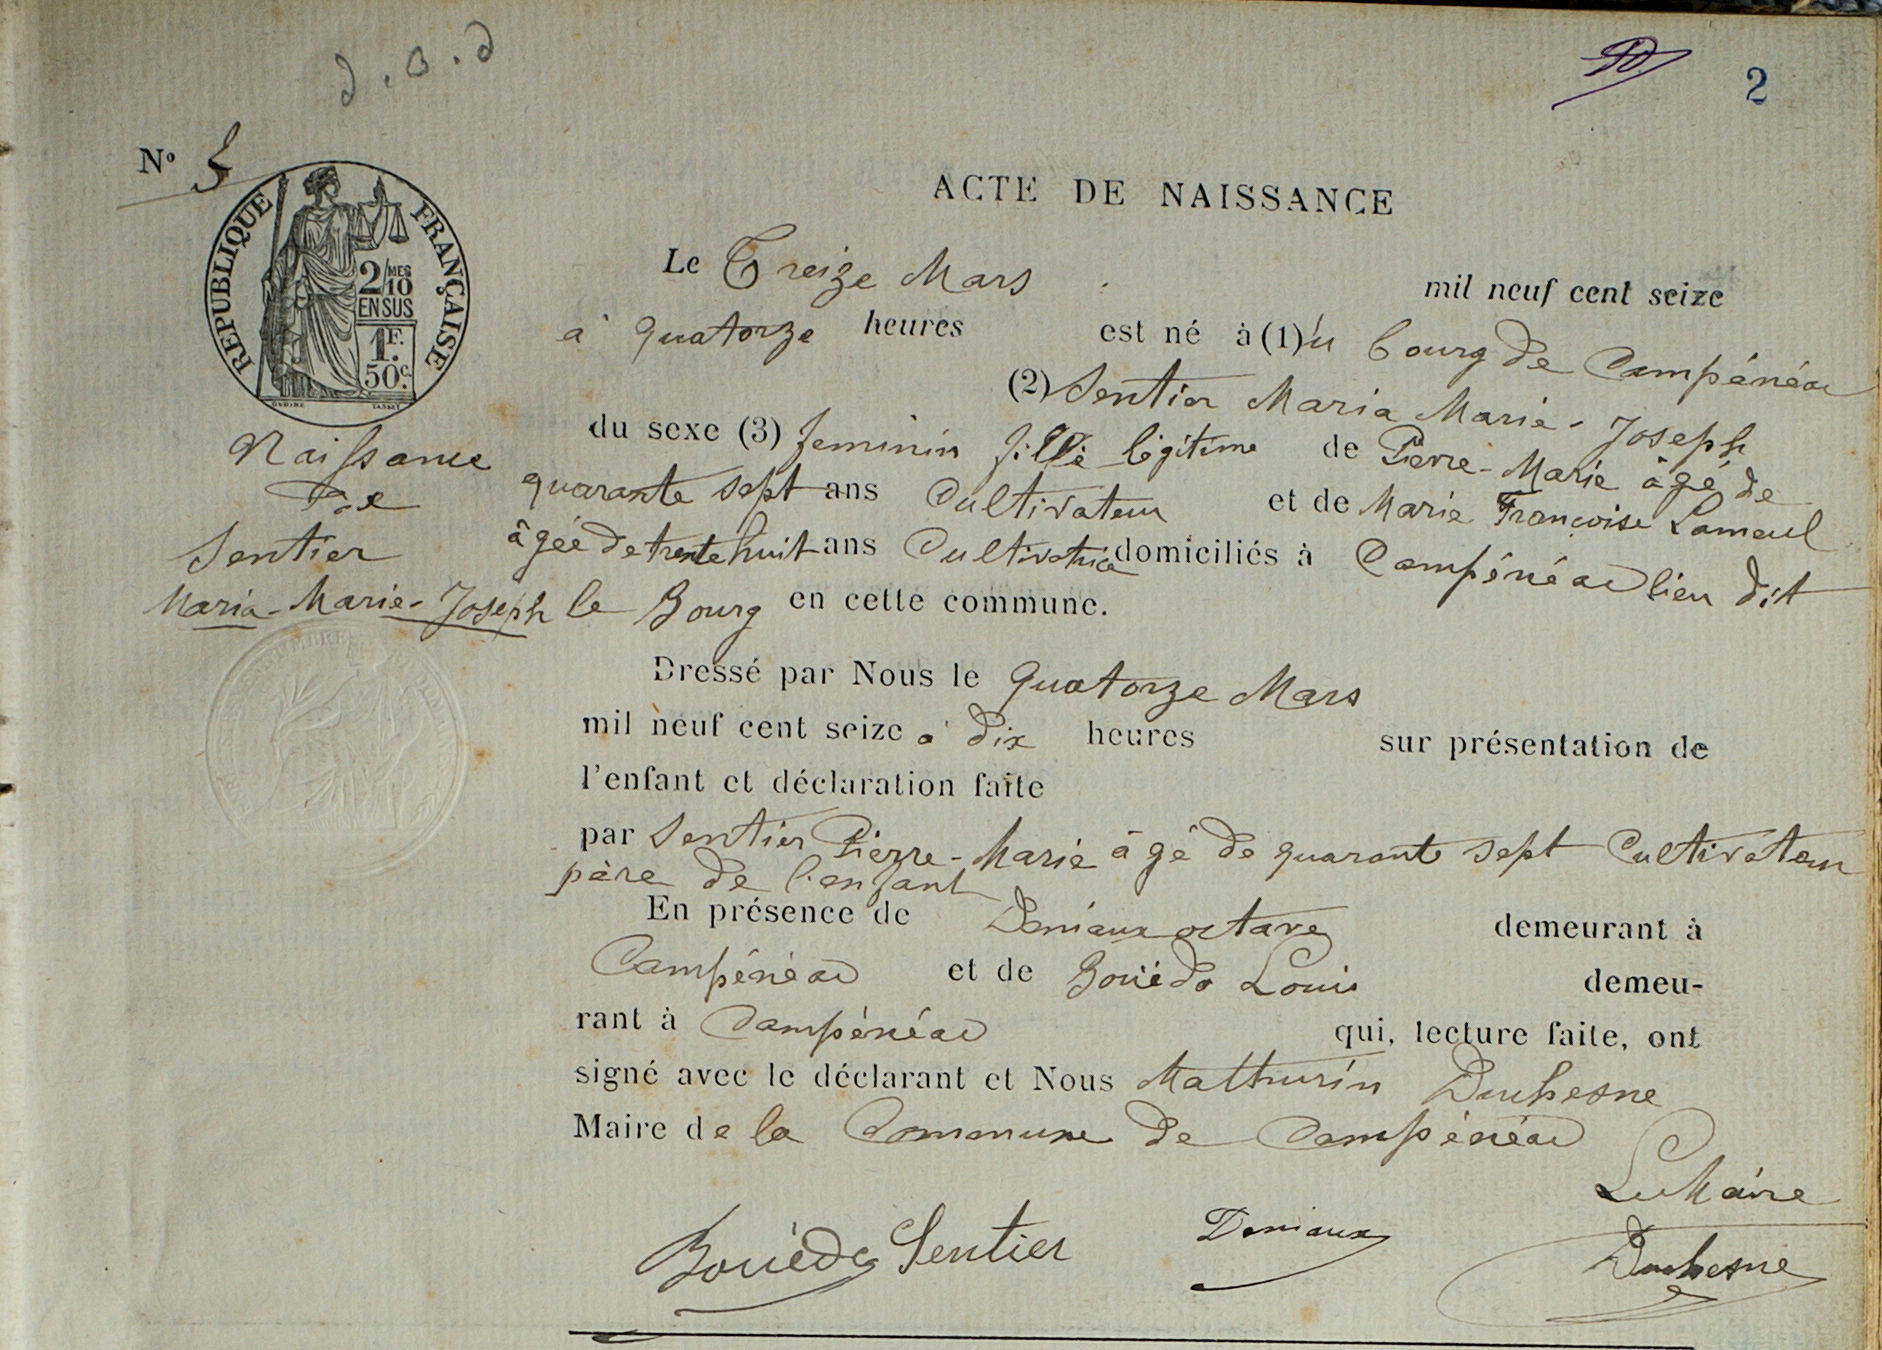 2
N° 5
REPUBLIQUE FRANÇAISE
2/MES
10
EN SUS
1F.
50c.
Naissance
De
Sentier
Maria-Marie-Joseph
ACTE DE NAISSANCE
Le Treize Mars mil neuf cent seize
à quatorze heures est né à (1)u bourg de Campénéac
(2) Sentier Maria Marie-Joseph
du sexe (3) feminin fille légitime de Pierre-Marie âgé de
quarante sept ans Cultivateur et de Marie Françoise Lamoul
âgée de trente huit ans Cultivatrice domiciliés à Campénéac lieu dit
le Bourg en cette commune.
Dressé par Nous le quatorze Mars
mil neuf cent seize à dix heures sur présentation de
l'enfant et déclaration faite
par Sentier Pierre-Marie âgé de quarante sept Cultivateur
père de l'enfant
En présence de Deniaux octave demeurant à
Campénéac et de Bouëdo Louis demeu-
rant à Campénéac qui, lecture faite, ont
signé avec le déclarant et Nous Mathurin Duchesne
Maire de la Commune de Campénéac
Le Maire
Bouëdo Sentier Deniaux Duchesne